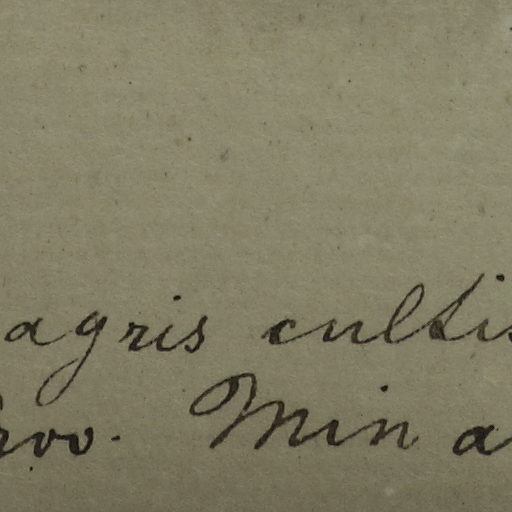 agris cultis
rov. Min a